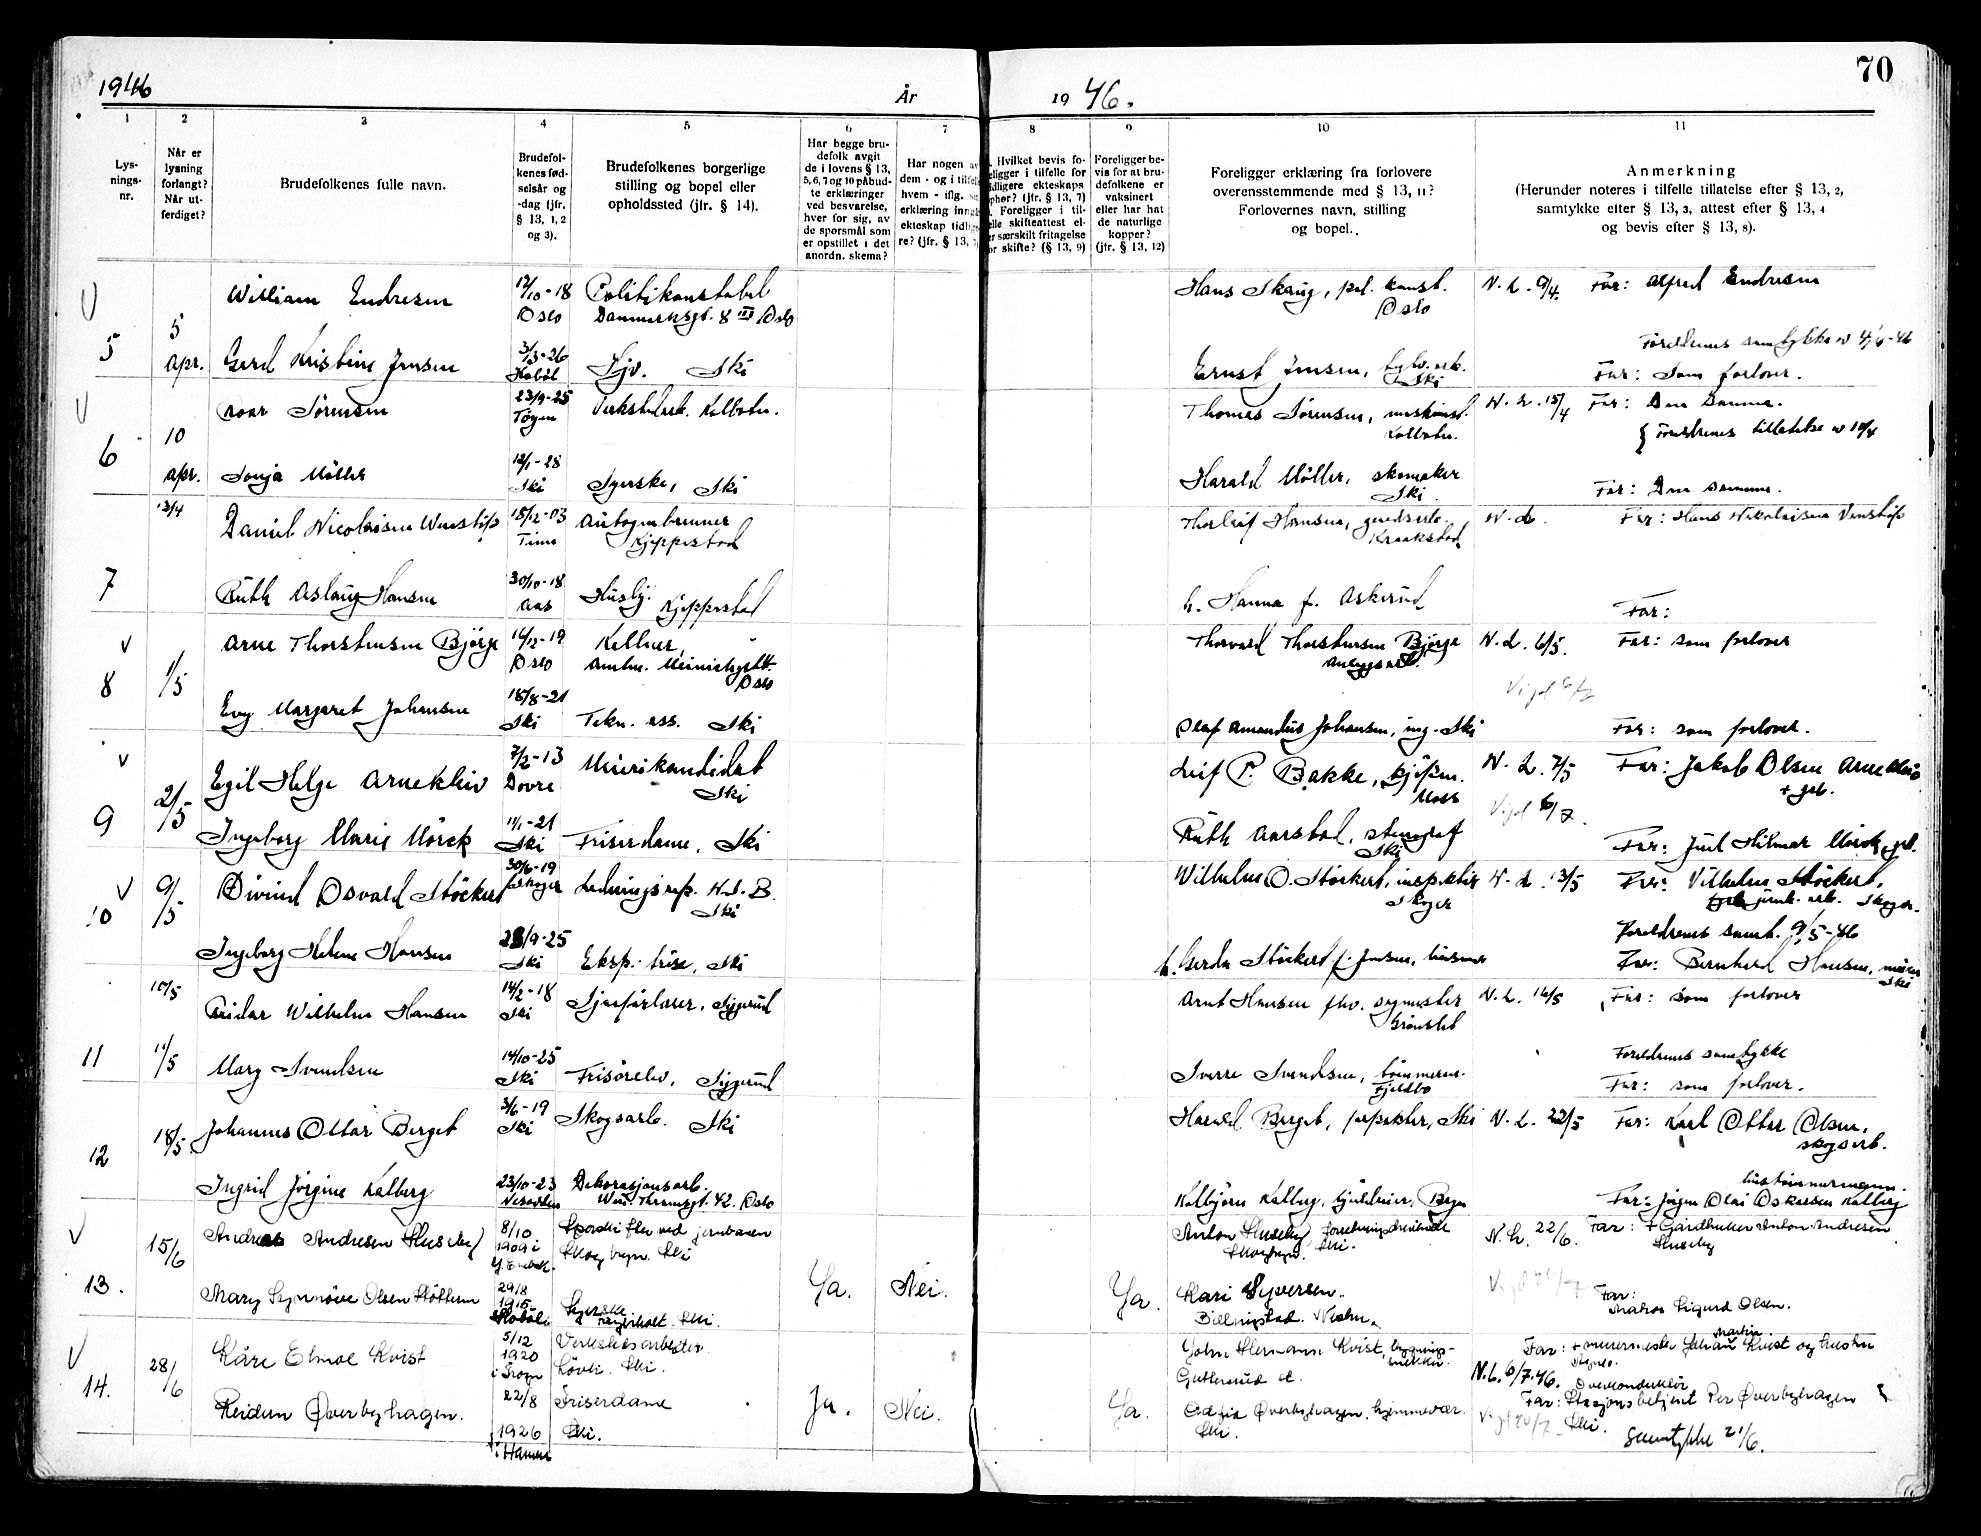 1946
År
19 46.
70
1
2
3
4
5
6
7
8
9
10
11
Lys-
nings-
nr.
Når er
lysning
forlangt?
Når ut-
ferdiget?
Brudefolkenes fulle navn.
Brudefol-
kenes fød-
selsår og
-dag (jfr.
§ 13, 1, 2
og 3).
Brudefolkenes borgerlige
stilling og bopel eller
opholdssted (jfr. § 14).
Har begge bru-
defolk avgit
de i lovens § 13,
5, 6, 7 og 10 påbud-
te erklæringer
ved besvarelse,
hver for sig, av
de spørsmål som
er opstillet i det
anordn. skema?
Har nogen av
dem - og i tilfelle
hvem - iflg.
erklæring inngått
ekteskap tidlige-
re? (jfr. § 13,
Hvilket bevis fo-
religger i tilfelle for
tidligere ekteskaps
ophør? (jfr. § 13, 7)
Foreligger i til-
felle skifteattest el-
ler særskilt fritagelse
for skifte? (§ 13, 9)
Foreligger be-
vis for at bru-
defolkene er
vaksinert
eller har hat
de naturlige
kopper?
(jfr. § 13, 12)
Foreligger erklæring fra forlovere
overensstemmende med § 13, 11?
Forlovernes navn, stilling
og bopel.
Anmerkning
(Herunder noteres i tilfelle tillatelse efter § 13, 2,
samtykke efter § 13, 3, attest efter § 13, 4
og bevis efter § 13, 8).
5
5
apr.
William Endresen
12/10-18
Oslo
Politikonstabel
Danmarksgt. 8 III Oslo
Hans Skaug, pol. konst.
Oslo
N. L. 9/4.
Far: Alfred Endresen
Gerd Kristine Jensen
3/3-26
Hobøl
Hjv. Ski
Ernst Jensen,
Ski
Foreldrenes samtykke
Far: Som forlover.
6
10
apr.
Roar Sørensen
23/9-25
Verkstedarb. Kolbotn.
Thomas Sørensen,
Kolbotn.
N. L. 15/4
Far: Den samme.
Foreldrenes tillatelse
Sonja Møller
12/1-28
Ski
Syerske, Ski
Harald Møller, skomaker
Ski.
Far: Den samme.
7
13/4
Daniel Nicolaisen
18/12-03
Time
Autogenbrenner
Kjeppestad
Thorleif Hansen, gårdsarb.
Kraakstad
N. L.
Far: Hans Nikolaisen
Ruth Aslaug Hansen
30/10-18
Aas
Husbg.
Kjeppestad
h. Hanna f. Askerud
Far:
8
1/5
Arne Thorstensen Bjørge
14/12-19
Oslo
Kellner,
Oslo
Thorvald Thorstensen Bjørge
Anleggsarb.
N. L. 6/5.
Far: som forlover
Evy Margaret Johansen
18/8-21
Ski
Tekn. ass. Ski
Olaf Amandus Johansen, ing. Ski
Far: som forlover.
9
2/5
Egil Helge Arneklev
7/2-13
Dovre
Meierikandidat
Ski
Leif P. Bakke,
Moss
N. L. 7/5
Far: Jakob Olsen Arneklev
Ingeborg Marie Mørck
11/1-21
Ski
Friserdame, Ski
Ruth Aarstad, stenograf
Ski
Far: Juel Hilmar Mørck,
10
9/5
Øivind Osvald Støckert
30/6-19
Skoger
Ledningsrep. N.S.B.
Ski
Wilhelm O. Støckert, inspektør
Skoger
N. L. 13/5
Far: Vilhelm Støckert,
Foreldrenes samt. 9/5-46
Ingeborg Helene Hansen
Ski
Eksp. trise, Ski
h. Gerda Støckert f. Jensen,
Far: Bernhard Hansen,
Ski
11
10/5
11/5
Reidar Wilhelm Hansen
14/2-18
Ski
Sjåførlærer, Siggerud
Arnt Hansen fhv. sagmester
N. L. 16/5
Far: som forlover
Mary Svendsen
14/10-25
Ski
Frisørelev, Siggerud
Sverre Svendsen, tømmerm.
Fjeldbo
Foreldrenes samtykke
Far: som forlover.
12
18/5
Johannes Ottar Berget
3/6-19
Ski
Skogsarb. Ski
Harald Berget, forpakter, Ski
N. L. 22/5
Far: Karl Ottar Olsen,
skogsarb.
Ingrid Jørgine Kalberg
23/10-23
Nesodden
Dekorasjonsarb.
42. Oslo
Kolbjørn Kalberg,
Far: Jørgen Olai Oskarsen Kalberg
13.
15/6
Andreas Andresen Huseby
8/10
1909 i
ved jernbanen
Skog bygn. Ski
Anton Huseby,
Ski.
N. L. 22/6.
Far: + Gårdbruker Anton Andresen
Huseby
Mary Synnøve Olsen
29/8
1915
Hobøl
Syerske
Ski.
Ja.
Nei.
Ja.
Kari Syversen.
Far:
Sigurd Olsen.
14.
28/6
Kåre Elmoe Kvist
5/12
1920
i Frogn
Verkstedsarbeider.
Ski.
John Hermann Kvist, bygnings-
snekker.
N.L. 6/7.46.
Far: + murermester Johan Martin Kvist og hustru
Agnes.
Reidun Øverbyhagen.
22/8
1926
i Hamar
Friserdame
Ski.
Ja.
Nei.
Ja.
Øverbyhagen, hjemmevær.
Ski.
Overkonduktør
Far: Stasjonsbetjent Per Øverbyhagen
Ski.
Samtykke 21/6.